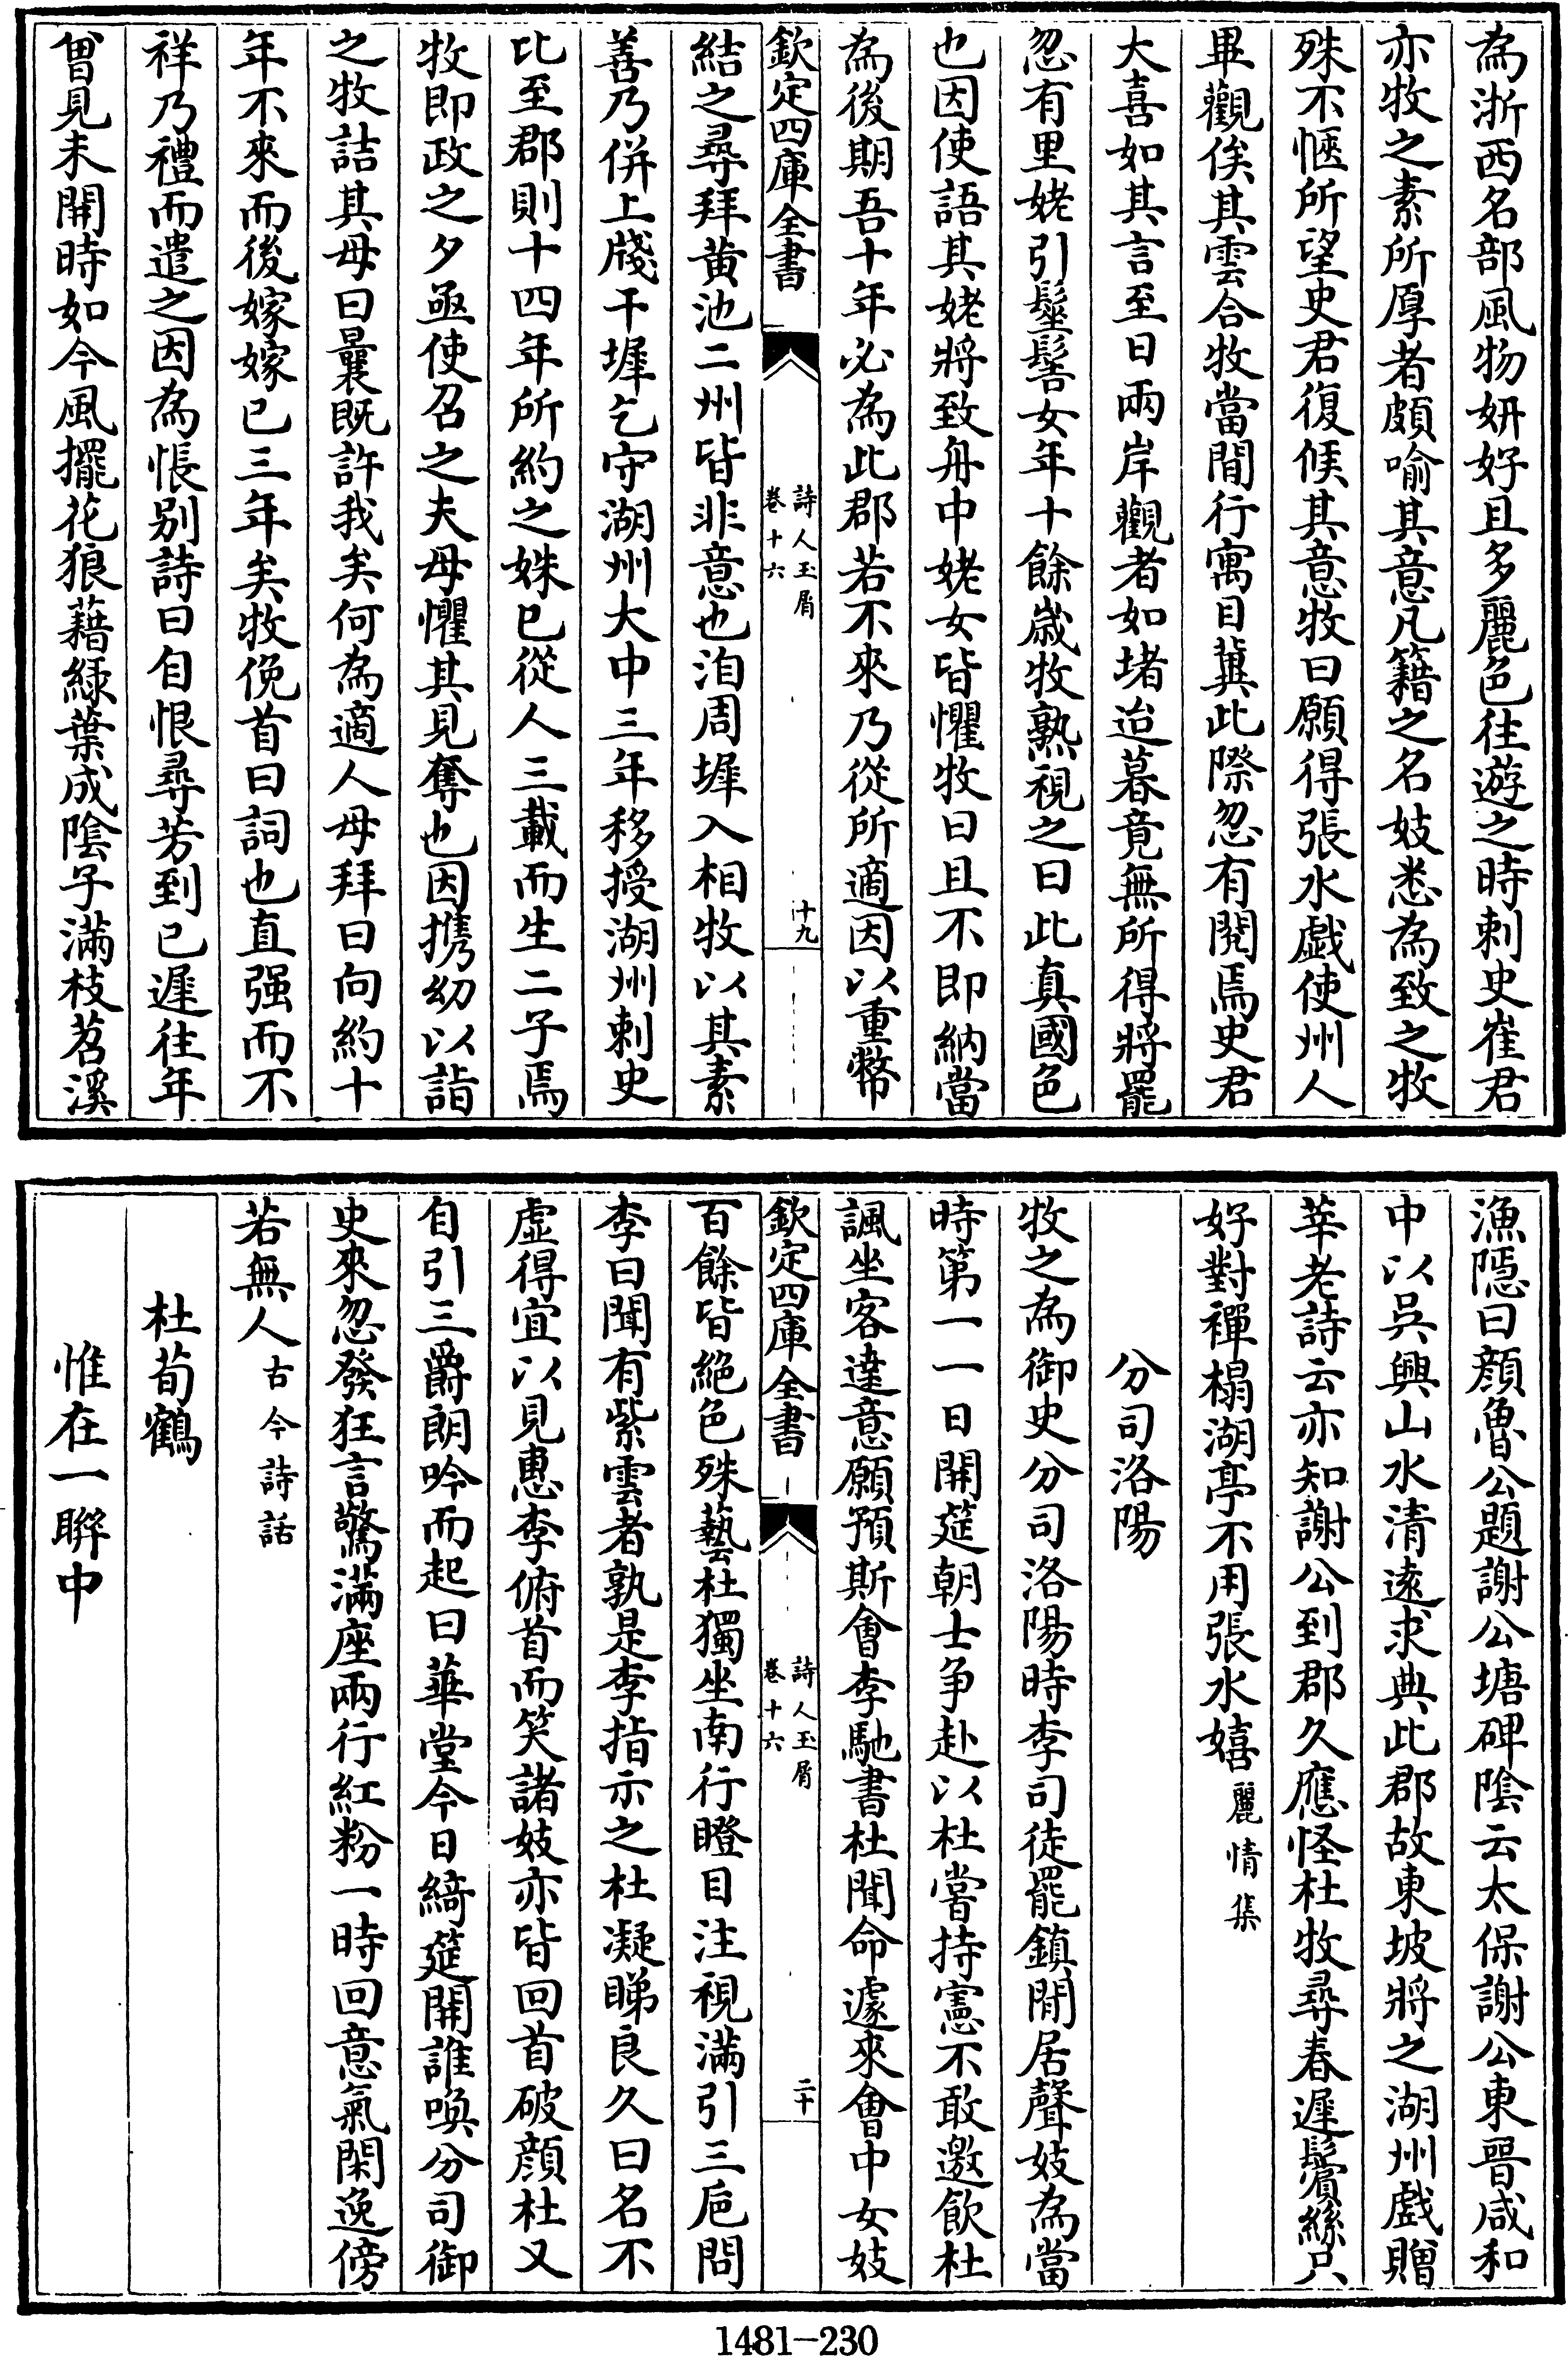 為浙西名部風物妍好且多麗色往遊之時刺史崔君
亦牧之素所厚者頗喻其意凡籍之名妓悉為致之牧
殊不愜所望史君復候其意牧曰願得張水戲使州人
畢觀俟其雲合牧當閒行寓目冀此際忽有閱焉史君
大喜如其言至日兩岸觀者如堵迨暮竟無所得將罷
忽有里姥引髽髻女年十餘歲牧熟視之曰此真國色
也因使語其姥將致舟中姥女皆懼牧曰且不即納當
為後期吾十年必為此郡若不來乃從所適因以重幣
欽定四庫全書
詩人玉屑
卷十六
十九
結之尋拜黄池二州皆非意也洎周墀入相牧以其素
善乃併上牋干墀乞守湖州大中三年移授湖州刺史
比至郡則十四年所約之姝已從人三載而生二子焉
牧即政之夕亟使召之夫母懼其見奪也因攜幼以詣
之牧詰其母曰曩既許我矣何為適人母拜曰向約十
年不來而後嫁嫁已三年矣牧俛首曰詞也直强而不
祥乃禮而遣之因為悵别詩曰自恨尋芳到已遲往年
曾見未開時如今風擺花狼藉綠葉成陰子滿枝苕溪
漁隱曰顔魯公題謝公塘碑陰云太保謝公東晉咸和
中以吳興山水清遠求典此郡故東坡將之湖州戲贈
莘老詩云亦知謝公到郡久應怪杜牧尋春遲鬢絲只
好對禪榻湖亭不用張水嬉麗情集
分司洛陽
牧之為御史分司洛陽時李司徒罷鎮閒居聲妓為當
時第一一日開筵朝士争赴以杜嘗持憲不敢邀飲杜
諷坐客達意願預斯會李馳書杜聞命遽來會中女妓
欽定四庫全書
詩人玉屑
卷十六
二十
百餘皆絕色殊藝杜獨坐南行瞪目注視滿引三巵問
李曰聞有紫雲者孰是李指示之杜凝睇良久曰名不
虛得宜以見惠李俯首而笑諸妓亦皆回首破顔杜又
自引三爵朗吟而起曰華堂今日綺筵開誰喚分司御
史來忽發狂言驚滿座兩行紅粉一時回意氣閑逸傍
若無人古今詩話
杜荀鶴
惟在一聯中
1481-230